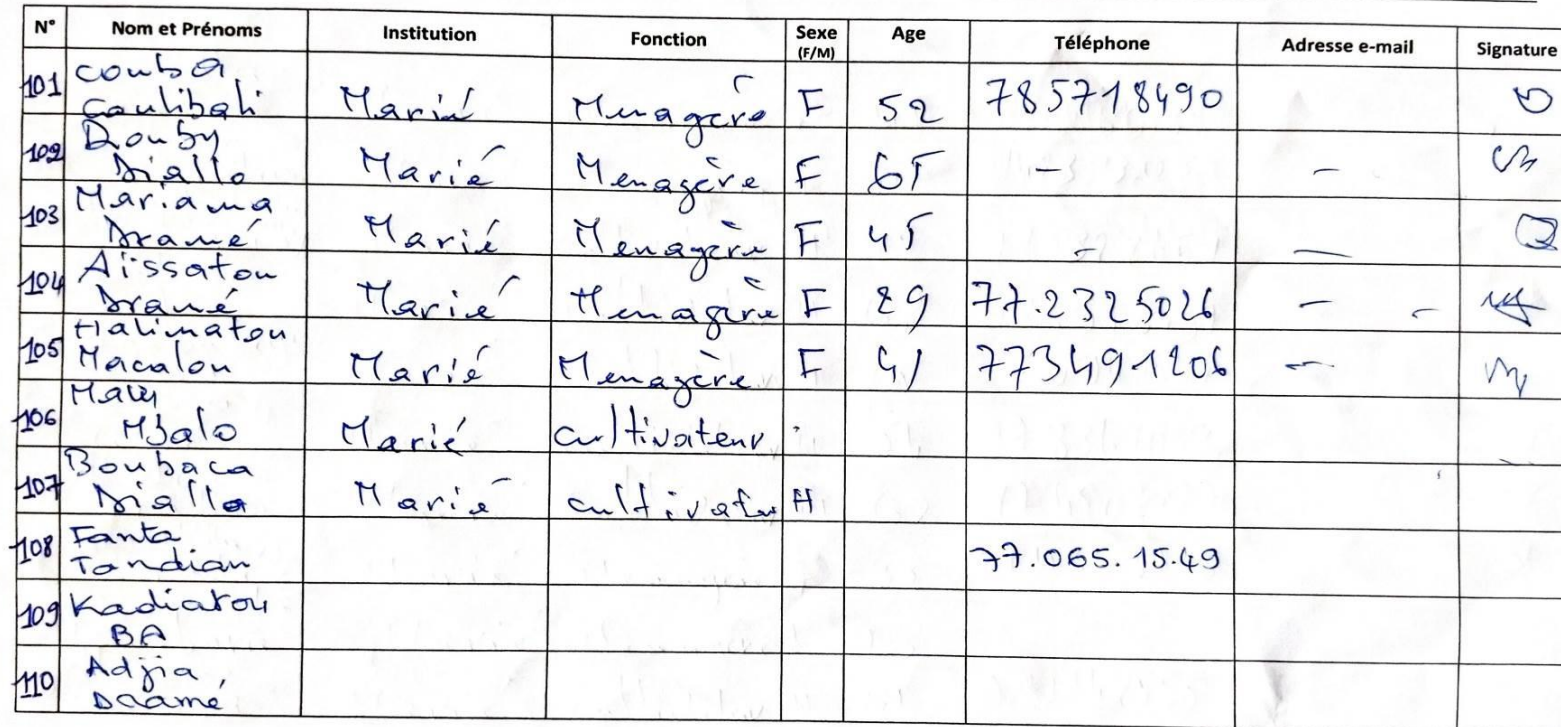 N° Nom et Prénoms Institution Fonction Sexe (F/M) Age Téléphone Adresse e-mail Signature
101 Couba
Coulibali Marié Menagère F 52 785718490
102 Douby
Diallo Marié Menagère F 65 - -
103 Mariama
Dramé Marié Menagère F 45 - -
104 Aissatou
Dramé Marié Menagère F 29 77.2325026 - -
105 Halimatou
Macalou Marié Menagère F 41 773491206 -
106
Marié cultivateur
107 Boubaca
Diallo Marié cultivateur H
108 Fanta
Tandian 77.065.15.49
109 Kadiatou
BA
110 Adjia
Daamé